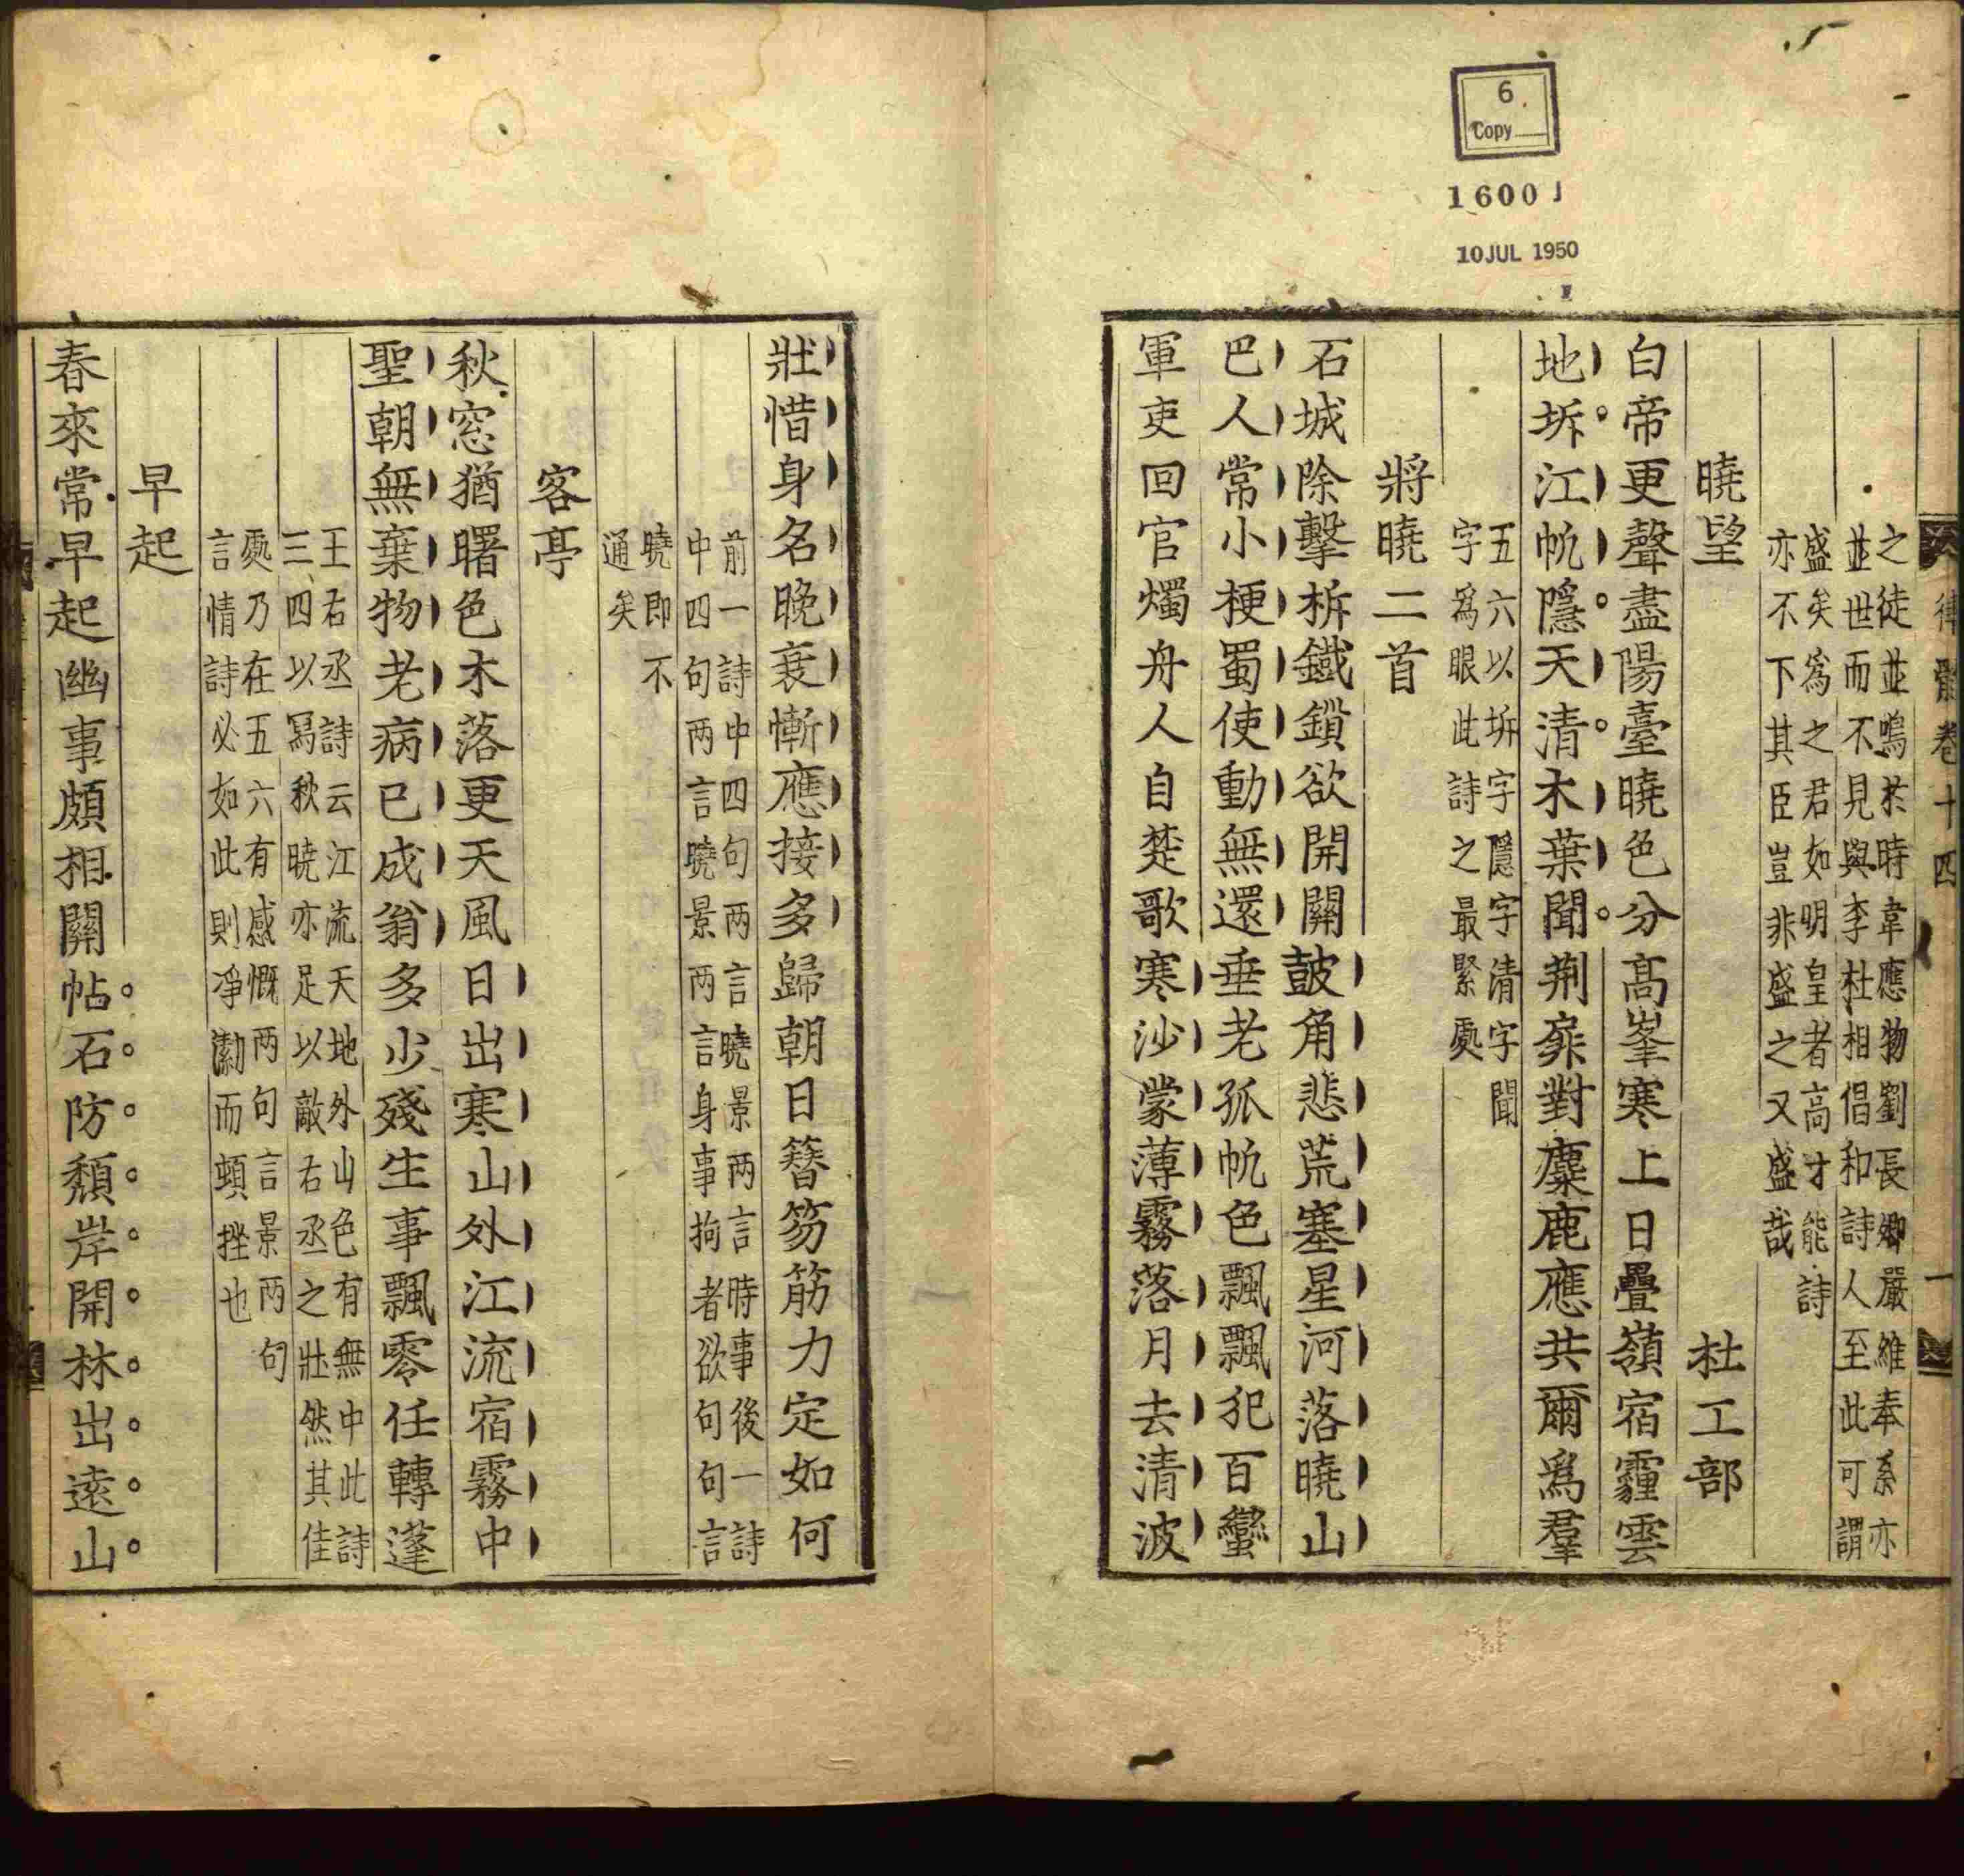 6
Copy
1600 J
10 JUL 1950
律髓卷十四
一
之徒並鳴於時韋應物劉長卿嚴維奉系亦
並世而不見與李杜相倡和詩人至此可謂
盛矣為之君如明皇者高才能詩
亦不下其臣豈非盛之又盛哉
曉望 杜工部
白帝更聲盡陽臺曉色分高峯寒上日疊嶺宿霾雲
地坼江帆隱天清木葉聞荆扉對麋鹿應共爾爲羣
五六以坼字隱字清字聞
字爲眼此詩之最緊處
將曉二首
石城除擊柝鐵鎖欲開關鼓角悲荒塞星河落曉山
巴人常小梗蜀使動無還垂老孤帆色飄飄犯百蠻
軍吏回官燭舟人自楚歌寒沙蒙薄霧落月去清波
壯惜身名晚衰慚應接多歸朝日簪笏筋力定如何
前一詩中四句两言曉景两言時事後一詩
中四句两言曉景两言身事拘者欲句句言
曉即不
通矣
客亭
秋窓猶曙色木落更天風日出寒山外江流宿霧中
聖朝無棄物老病已成翁多少殘生事飄零任轉蓬
王右丞詩云江流天地外山色有無中此詩
三四以冩秋曉亦足以敵右丞之壯然其佳
處乃在五六有感慨两句言景两句
言情詩必如此則淨潔而頓挫也
早起
春來常早起幽事頗相關帖石防頽岸開林出遠山